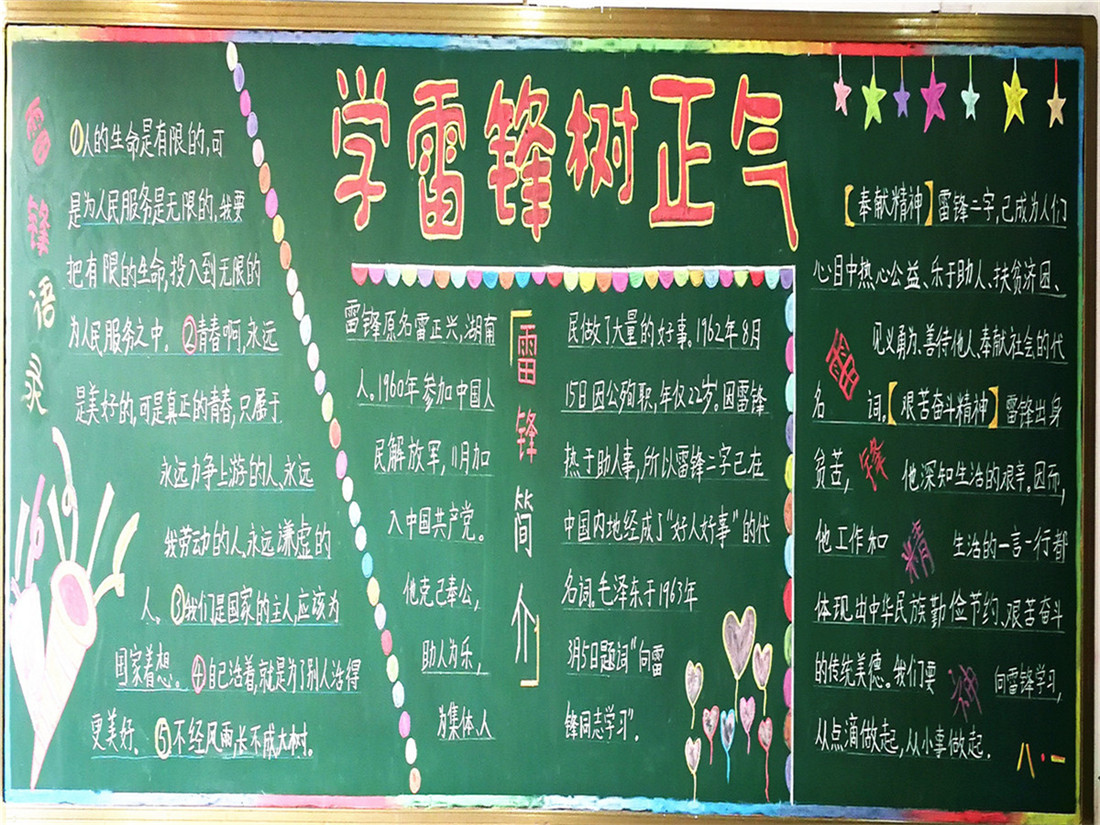 学雷锋树正气
雷锋语录
①人的生命是有限的,可
是为人民服务是无限的,我要
把有限的生命,投入到无限的
为人民服务之中。②青春啊,永远
是美好的,可是真正的青春,只属于
永远力争上游的人,永远
我劳动的人,永远谦虚的
人、③我们是国家的主人,应该为
国家着想。④自己活着,就是为了别人活得
更美好、⑤不经风雨,长不成大树。
雷锋简介
雷锋原名雷正兴,湖南
人。1960年参加中国人
民解放军,11月加
入中国共产党。
他克己奉公,
助人为乐,
为集体、人
民做了大量的好事。1962年8月
15日因公殉职,年仅22岁。因雷锋
热于助人事,所以雷锋二字已在
中国内地经成了“好人好事”的代
名词。毛泽东于1963年
3月5日题词“向雷
锋同志学习”.
雷锋精神
【奉献精神】雷锋二字,已成为人们
心目中热心公益、乐于助人、扶贫济困、
见义勇为、善待他人、奉献社会的代
名词.【艰苦奋斗精神】雷锋出身
贫苦,他深知生活的艰辛。因而,
他工作和生活的一言一行都
体现出中华民族勤俭节约、艰苦奋斗
的传统美德。我们要向雷锋学习,
从点滴做起,从小事做起.
八·一